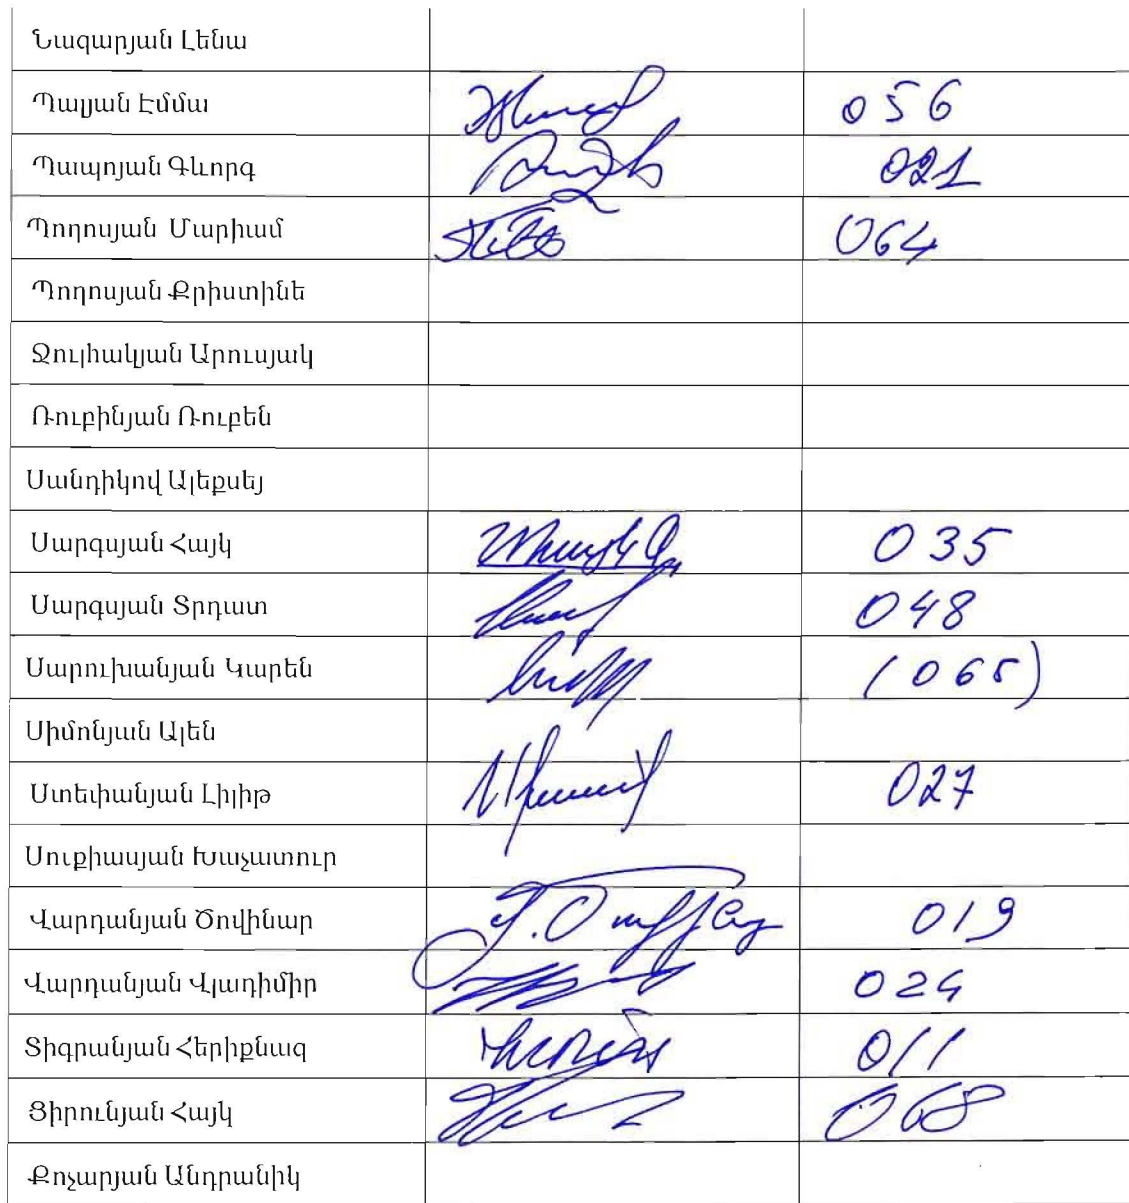 Նազարյան Լենա
Պալյան Էմմա 056
Պապոյան Գևորգ 021
Պողոսյան Մարիամ 064
Պողոսյան Քրիստինե
Ջուլհակյան Արուսյակ
Ռուբինյան Ռուբեն
Սանդիկով Ալեքսեյ
Սարգսյան Հայկ 035
Սարգսյան Տրդատ 048
Սարուխանյան Կարեն (065)
Սիմոնյան Ալեն
Ստեփանյան Լիլիթ 027
Սուքիասյան Խաչատուր
Վարդանյան Ծովինար 019
Վարդանյան Վլադիմիր 024
Տիգրանյան Հերիքնազ 011
Ցիրունյան Հայկ 068
Քոչարյան Անդրանիկ